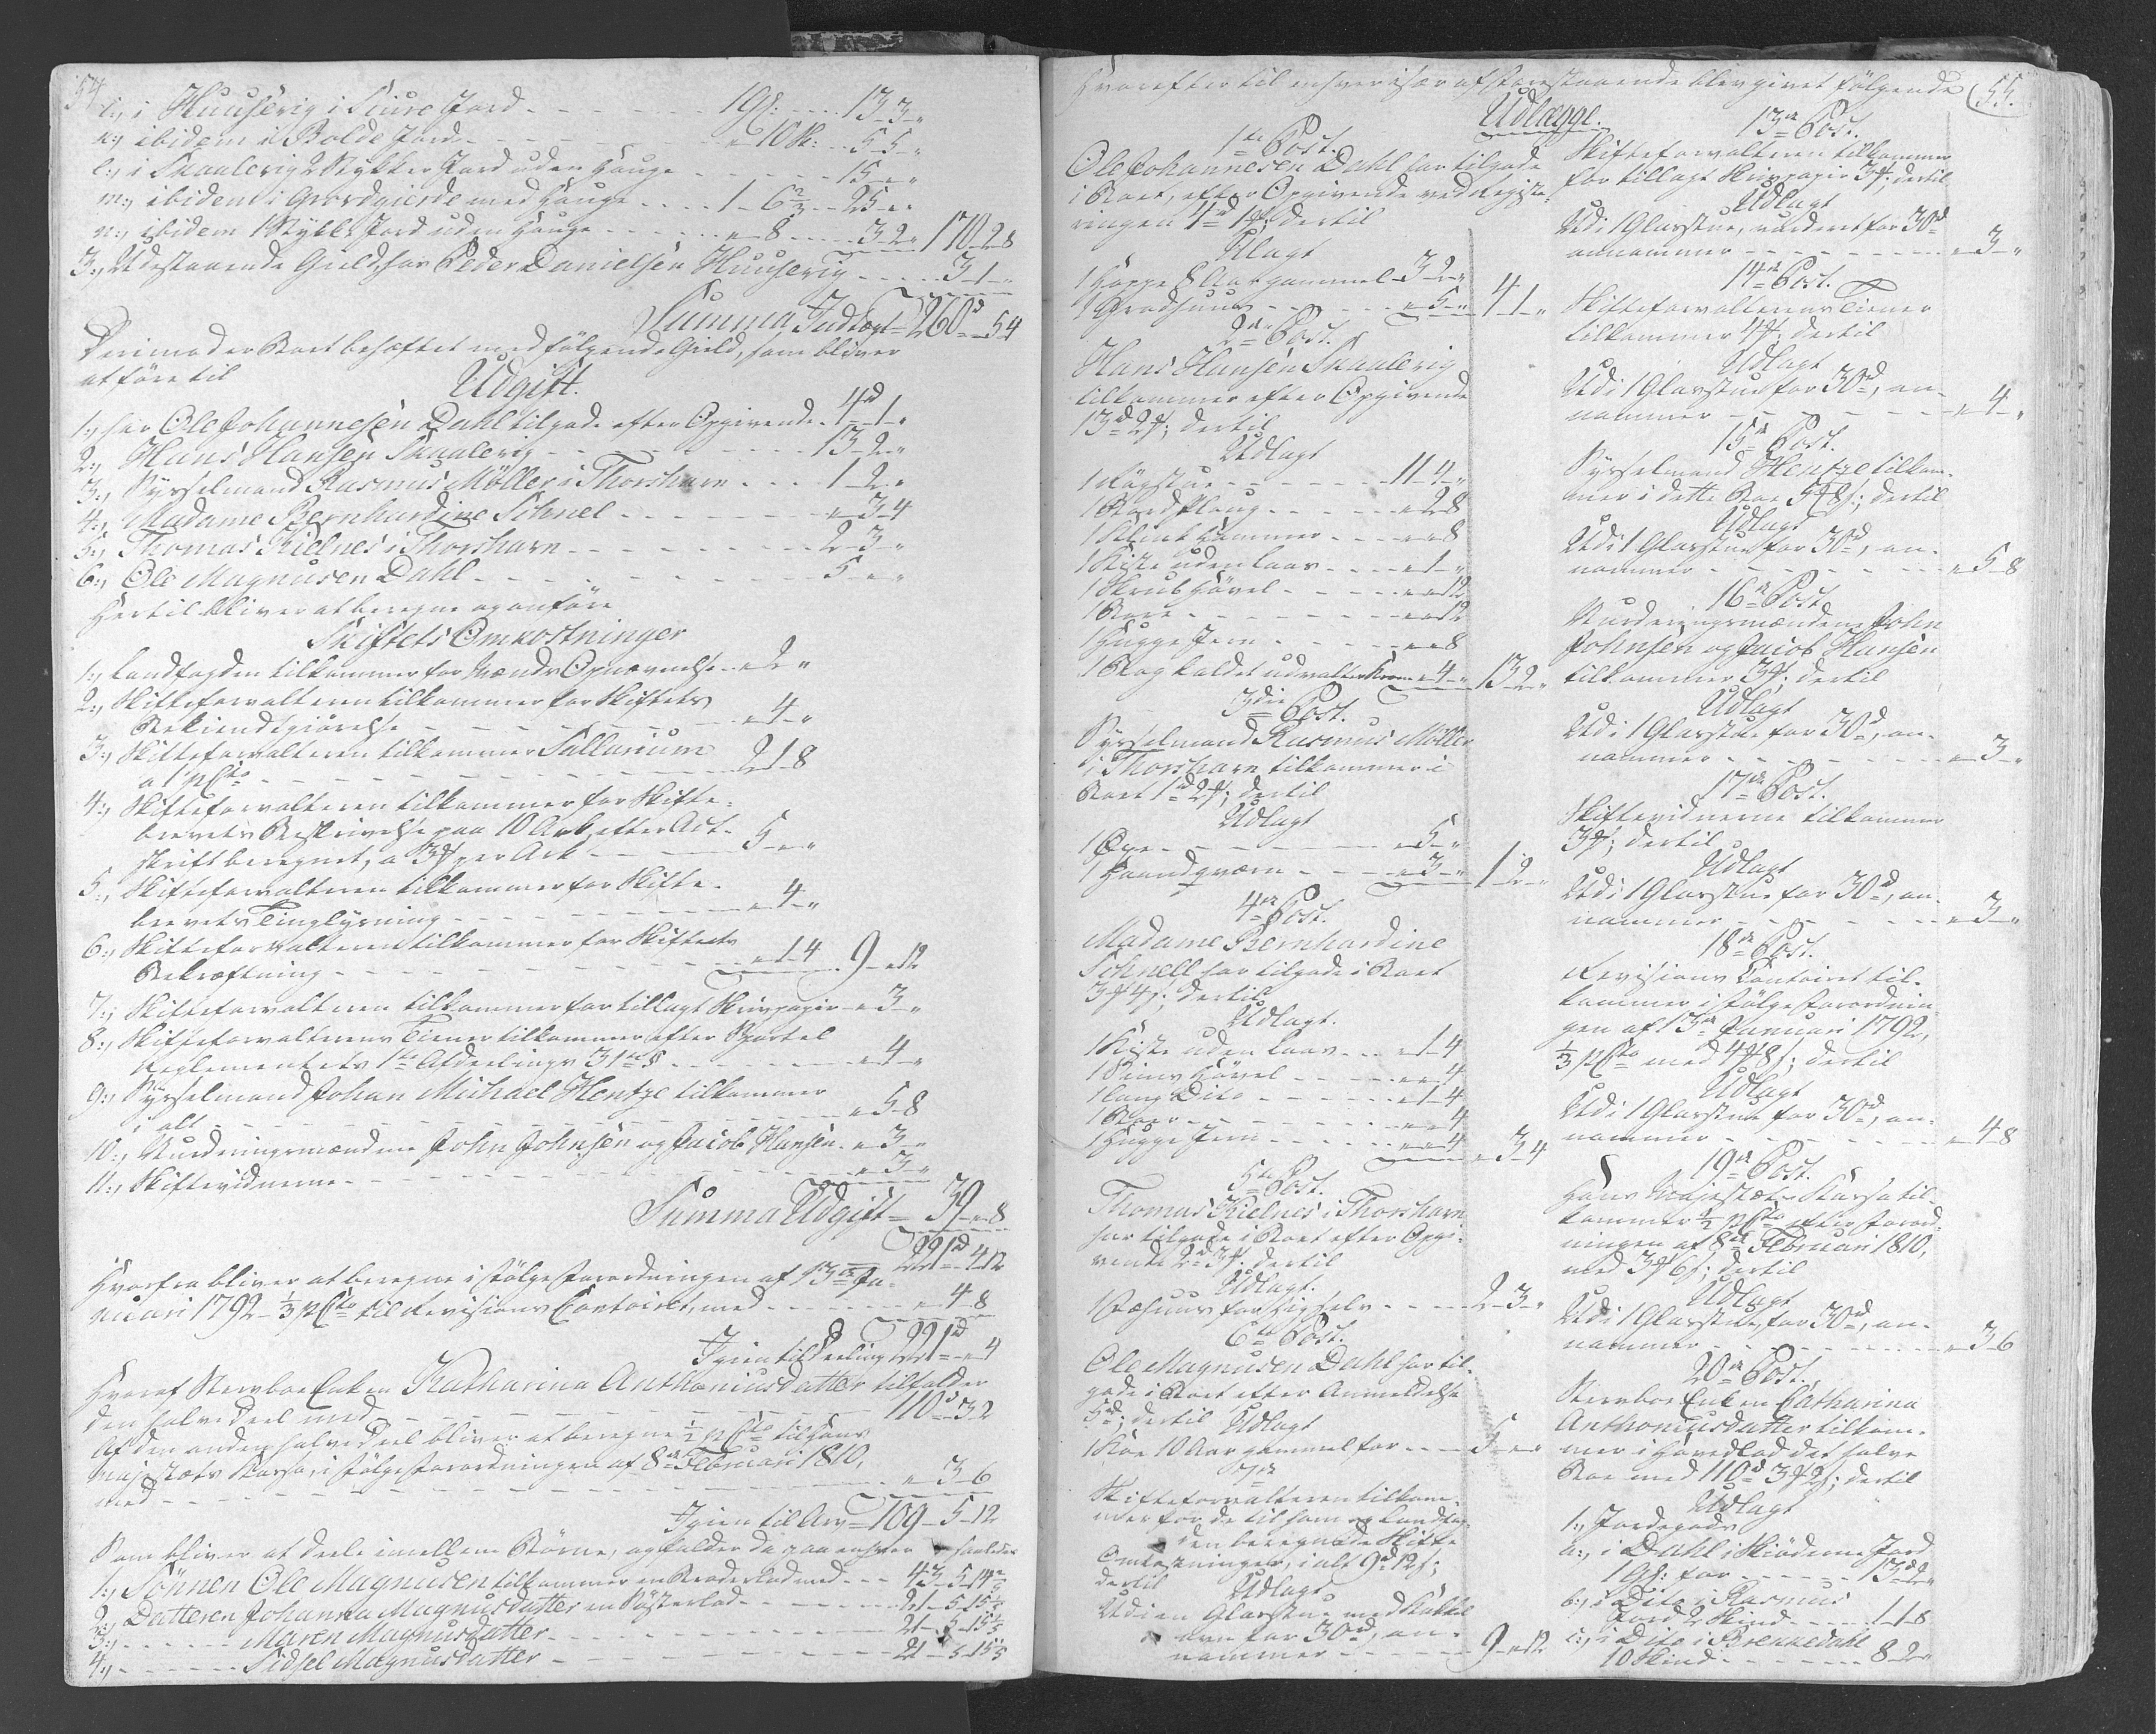 54
i, i Huusevig i Suure Jord - - - - - 1 Gl: - - - 13-3-"
k, ibidem i Bolde Jord - - - - - " 10 Sk: - - 5-5-"
l, i Skaalevig 2 Stykker Jord uden Hauge - - - - - 15-"-"
m, ibidem i Grovdgierde med Hauge - - - 1-6 2/3 - - 25-"-"
n, ibidem 1 Stykke Jord uden Hauge - - - - "-8 - - - 3-2-" 170-2-8
3, Udestaaende Gield, hos Peder Danielsen Huusevig - - - 3-1-"
Summa Indtægt = 260 d - 5-4
Derimod er Boet behæftet med følgende Gield, som bliver
at føre til
Udgift.
1, har Ole Johannesen Dahl tilgode efter Opgivende - 4 d - 1-"
2, Hans Hansen Skaalevig - - - - - - 13-2-"
3, Sysselmand Rasmus Möller i Thorshavn - - - - 1-2-"
4, Madame Bernhardine Schnel - - - - - - "-3-4
5, Thomas Kielnes i Thorshavn - - - - - - - 2-3-"
6, Ole Magnusen Dahl - - - - - - - - 5-"-"
Hertil bliver at beregne og anføre
Skiftets Omkostninger
1, Landfogden tilkommer for Mænds Opnævnelse - "-2-"
2, Skifteforvalteren tilkommer for Skiftets
Bekiendtgiørelse - - - - - - - "-4-"
3, Skifteforvalteren tilkommer Sallarium
a 1 pCto - - - - - - - - 2-1-8
4, Skifteforvalteren tilkommer for Skifte-
brevets Beskrivelse paa 10 Ark, efter Act-
skrift beregnet, a 3 f per Ark - - - - 5-"-"
5, Skifteforvalteren tilkommer for Skifte-
brevets Tinglysning - - - - - - - "-4-"
6, Skifteforvalteren tilkommer for Skiftets
Bekræftning - - - - - - - "-1-4 9-"-12
7, Skifteforvalteren tilkommer for tillagt Skrivpapir - "-3-"
8, Skifteforvalterens Tiener tilkommer efter Sportel
Reglementets 1te Afdeelings 31te § - - - - - "-4-"
9, Sysselmand Johan Michael Hentze tilkommer
i alt - - - - - - - - - - "-5-8
10, Vurderingsmændene John Johnsen og Jacob Hansen - "-3-"
11, Skiftevidnerne - - - - - - - - "-3-"
Summa Udgift = 39-"-8
221 d - 4-12
Hvorfra bliver at beregne i følge Forordningen af 13de Ja-
nuari 1792 - 1/3 pCto til Revisions Contoiret, med - - - - - "-4-8
Igien til Deeling 221 d = "-4
Hvoraf Stervboe Enken Katharina Anthoniusdatter tilfalder
den halve Deel med - - - - - - - - - 110 d - 3-2
Af den anden halve Deel bliver at beregne 1/2 pCto til Hans
Majestæts Kassa, i følge Forordningen af 8de Februari 1810,
med - - - - - - - - - - - "-3-6
Igien til Arv = 109-5-12
Som bliver at deele imellem Börne, og falder da paa enhver saaledes
1, Sönnen Ole Magnusen tilkommer en Broderlod med - - 43-5-14 2/5
2, Datteren Johanna Magnusdatter en Søsterlod - - - - 21-5-15 1/5
3, - - - - Maren Magnusdatter - - - - - - - 21-5-15 1/5
4, - - - - Sidsel Magnusdatter - - - - - - - 21-5-15 1/5
55.
Hvorefter til enhver især af foranstaaende blev givet følgende
Udlægge.
1te Post.
Ole Johannesen Dahl har tilgode
i Boet, efter Opgivende ved Registe-
ringen 4 d 1 f; dertil
Udlagt
1 Hoppe 8 Aar gammel - 3-2-"
1 Grodhuus - - - - - "-5-" 4-1-"
2den Post.
Hans Hansen Skaalevig
tilkommer efter Opgivende
13 d 2 f; dertil
Udlagt
1 Røgstue - - - - - 11-4-"
1 Bordplang - - - - "-2-8
1 Klint Hammer - - - "-"-8
1 Kiste uden Laas - - - "-1-"
1 Skrubhövel - - - - "-"-12
1 Bore - - - - - "-"-12
1 Hugge Jern - - - - "-"-8
1 Bog kaldet udvalte Kiern "-4-" 13-2-"
3die Post.
Sysselmand Rasmus Möller
i Thorshavn tilkommer i
Boet 1 d 2 f; dertil
Udlagt
1 Oxe - - - - - "-5-"
1 Haandqværn - - - "-3-" 1-2-"
4de Post.
Madame Bernhardine
Schnell har tilgode i Boet
3 f 4 s; dertil
Udlagt.
1 Kiste uden Laas - - - "-1-4
1 Sims Hövel - - - - "-"-4
1 lang Dito - - - - "-1-4
1 Boer - - - - - "-"-4
1 Hugge Jern - - - - "-"-4 "-3-4
5te Post.
Thomas Kielnes i Thorshavn
har tilgode i Boet efter Opgi-
vende 2 d 3 f. dertil
Udlagt.
1 Fæhuus for sig selv - - - 2-3-"
6te Post.
Ole Magnusen Dahl har til-
gode i Boet efter Anmeldelse
5 d; dertil
Udlagt
1 Koe 10 Aar gammel for - - 5-"-"
7de
Skifteforvalteren tilkom-
mer for de til ham og Landfog-
den beregnede Skifte
Omkostninger, i alt 9 d 12 s;
dertil
Udlagt
Udi en Glasstue med Kakkel
ovn for 30 d, an-
nammer - - - - - - 9-"-12
13de Post.
Skifteforvalteren tilkommer
for tillagt Skrivpapir 3 f; dertil
Udlagt
Udi 1 Glasstue, vurderet for 30 d
annammer - - - - - - "-3-"
14de Post.
Skifteforvalterens Tiener
tilkommer 4 f; dertil
Udlagt
Udi 1 Glasstue for 30 d, an-
nammer - - - - - - - "-4-"
15de Post.
Sysselmand Hentze tilkom-
mer i dette Boe 5 f 8 s; dertil
Udlagt
Udi 1 Glasstue for 30 d, an-
nammer - - - - - - - "-5-8
16de Post.
Vurderingsmændene John
Johnsen og Jacob Hansen
tilkommer 3 f; dertil
Udlagt
Udi 1 Glasstue for 30 d, an-
nammer - - - - - - - "-3-"
17de Post.
Skiftevidnerne tilkommer
3 f; dertil
Udlagt
Udi 1 Glasstue for 30 d, an-
nammer - - - - - - - "-3-"
18de Post.
Revisions Contoiret til-
kommer i følge Forordnin-
gen af 13de Januari 1792,
1/3 pCto med 4 f 8 s; dertil
Udlagt
Udi 1 Glasstue for 30 d, an-
nammer - - - - - - - "-4-8
19de Post.
Hans Majestæts Kassa til-
kommer 1/2 pCto efter Forord-
ningen af 8de Februari 1810,
med 3 f 6 s; dertil
Udlagt
Udi 1 Glasstue, for 30 d, an-
nammer - - - - - - - "-3-6
20de Post.
Stervboe Enken Catharina
Anthoniusdatter tilkom-
mer i Hovedlod det halve
Boe med 110 d 3 f 2 s; dertil
Udlagt
1, Jordegods
a, i Dahl i Skiödeme Jord
1 Gl: for - - - - 13 d 2-"
b, i Dito i Rasmus
Jord 2 Skind - - - - 1-1-8
c, i Dito i Brekkedahl
10 Skind - - - - - 8-2-"